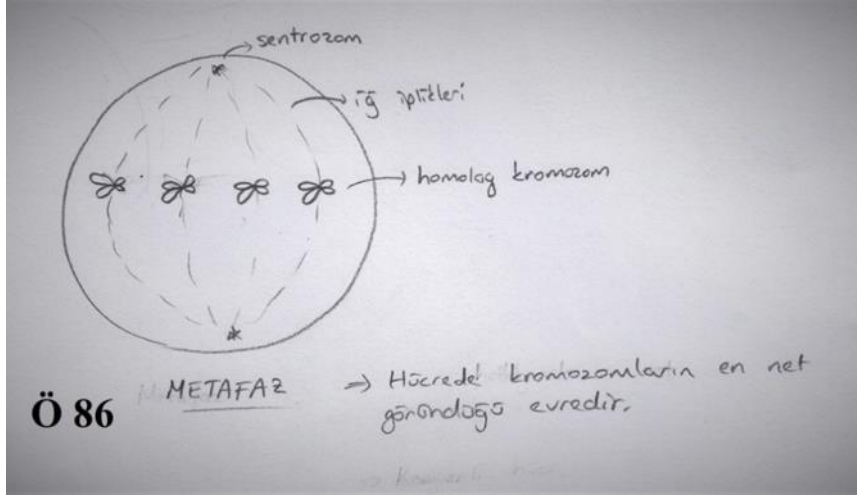 sentrozom
iğ iplikleri
homolog kromozom
METAFAZ
→ Hücrede kromozomların en net
göründüğü evredir.
Ö 86